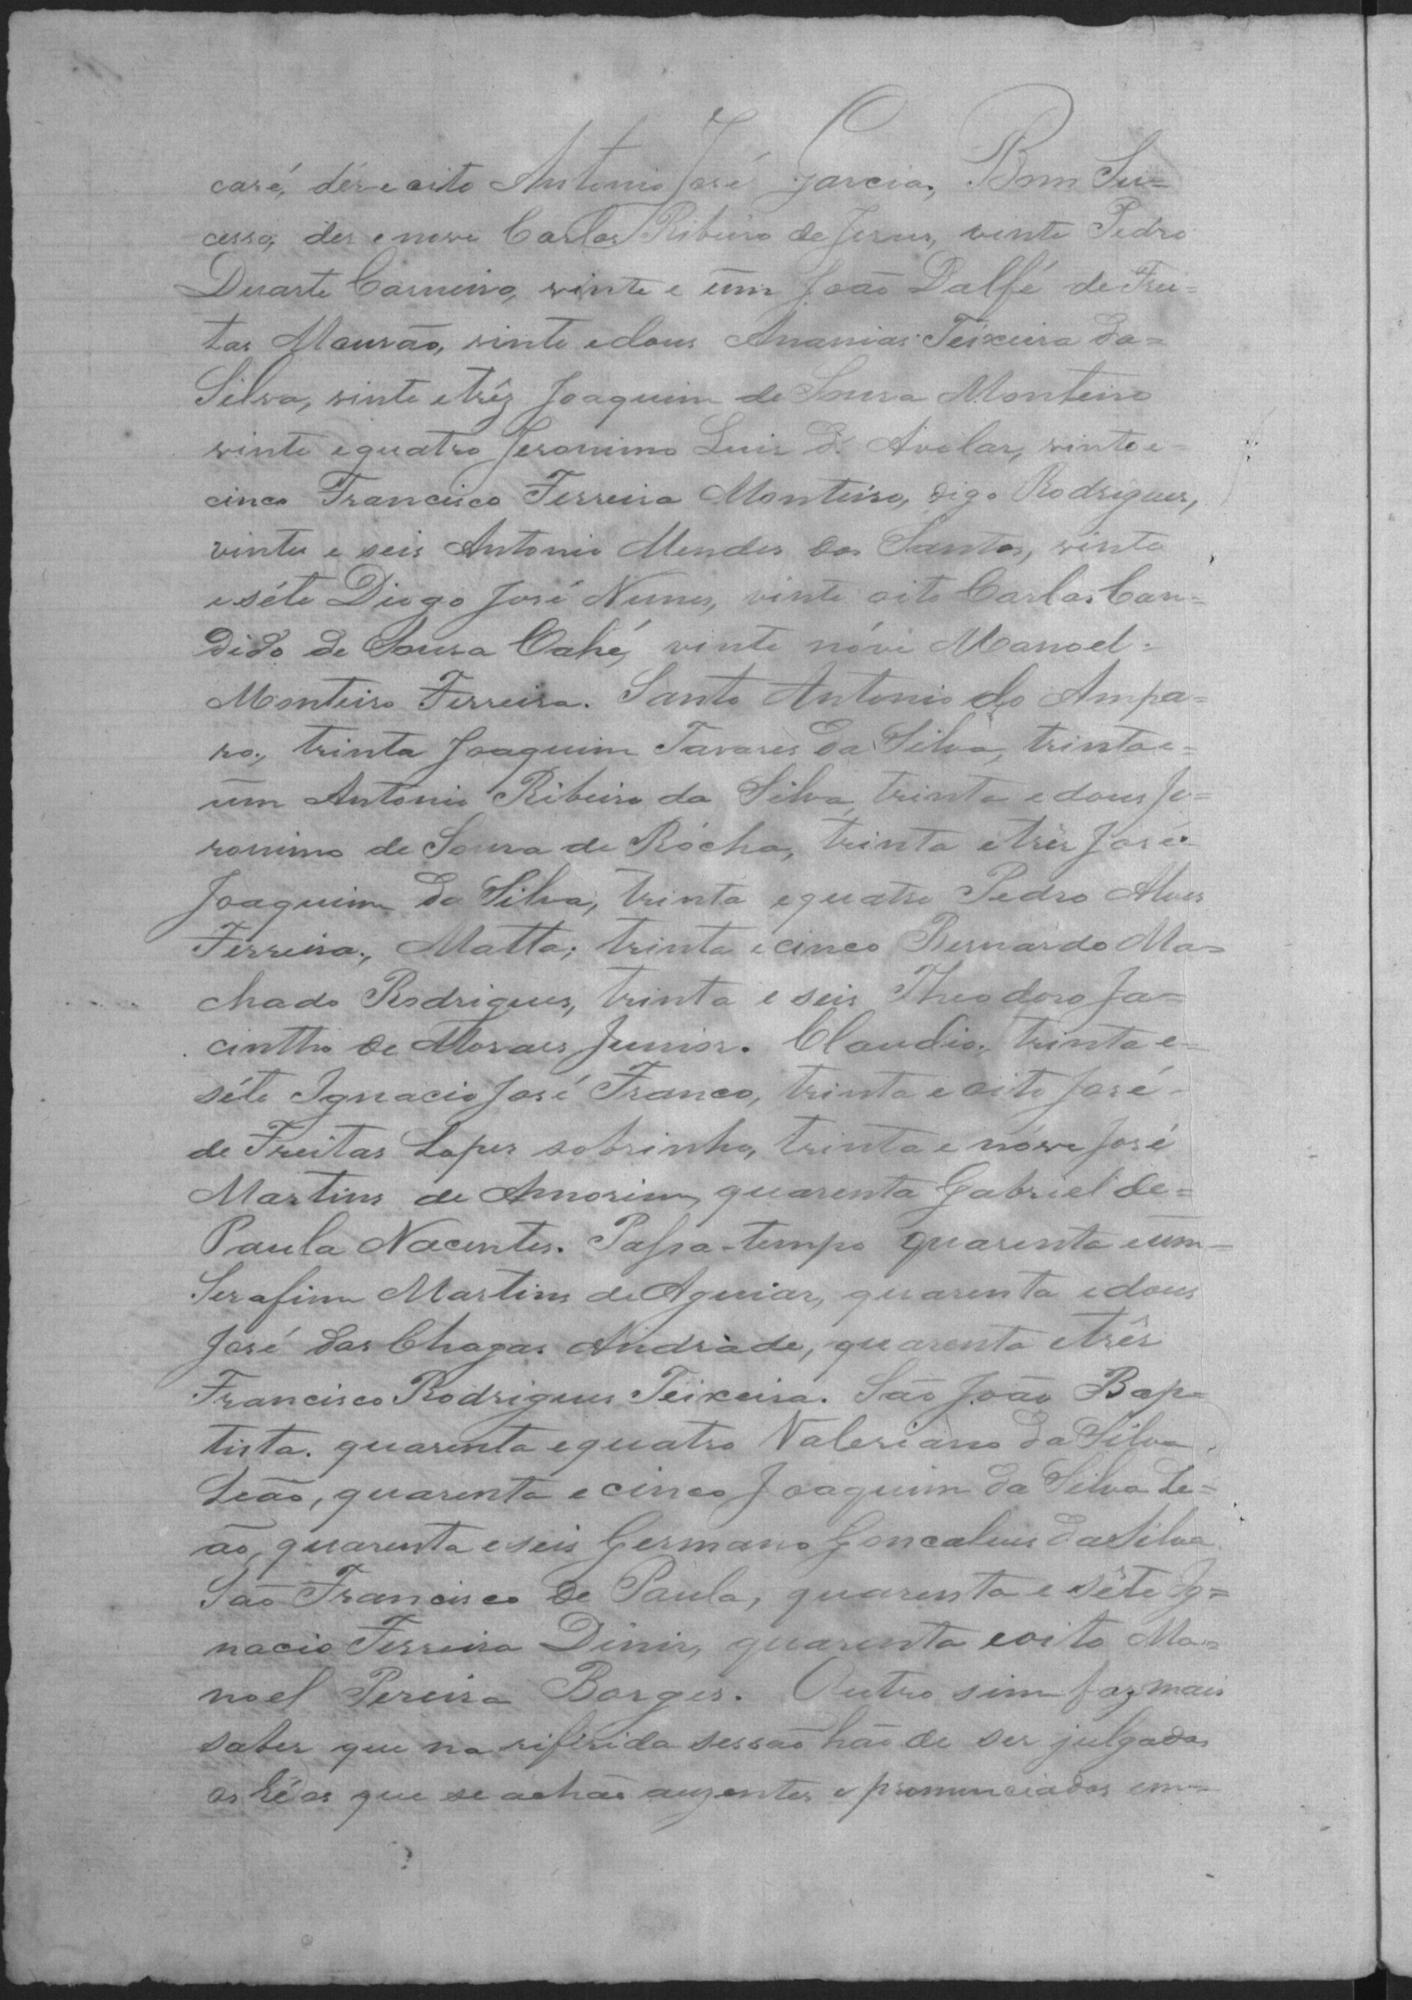 caré, dés e oito Antonio José Garcia, Bom Su=
cesso, des e nove Carlos Ribeiro de Jesus, vinte Pedro
Duarte Carneiro, vinte e um João Dalfé de Frei=
tas Mourão, vinte e dous Ananias Teixeira da=
Silva, vinte e três Joaquim de Sousa Monteiro
vinte e quatro Jeronimo Luis d' Avelar, vinte e=
cinco Francisco Ferreira Monteiro, digo Rodrigues,
vinte e seis Antonio Mendes dos Santos, vinte
e séte Diogo José Nunes, vinte oito Carlos Can=
dido de Sousa Cahé, vinte nóve Manoel=
Monteiro Ferreira. Santo Antonio do Ampa=
ro, trinta Joaquim Tavares da Silva, trinta e=
um Antonio Ribeiro da Silva, trinta e dous Je=
ronimo de Sousa de Rócha, trinta e três José
Joaquim da Silva, trinta e quatro Pedro Alves
Ferreira, Matta; trinta e cinco Bernardo Ma=
chado Rodrigues, trinta e seis Theodoro Ja=
cintho de Moraes Junior. Claudio, trinta e=
séte Ignacio José Franco, trinta e oito José
de Freitas Lopes sobrinho, trinta e nóve José
Martins de Amorim, quarenta Gabriel de=
Paula Nacentes. Passa-tempo quarenta e um=
Serafim Martins de Aguiar, quarenta e dous
José das Chagas Andrade, quarenta e três
Francisco Rodrigues Teixeira. São João Bap=
tista. quarenta e quatro Valeriano da Silva
Leão, quarenta e cinco Joaquim da Silva Le=
ão, quarenta e seis Germano Goncalves da Silva
São Francisco de Paula, quarenta e séte Ig=
nacio Ferreira Dinis, quarenta e oito Ma=
noel Pereira Borges. Outro sim faz mais
saber que na referida sessão hão de ser julgados
os Réos que se achão auzentes e pronunciados em=